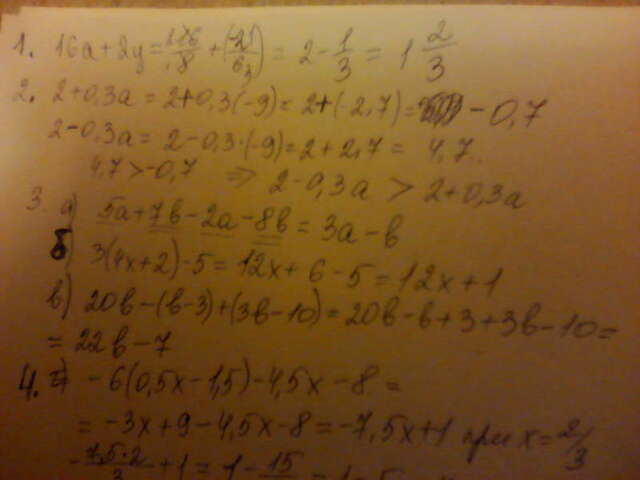 1. 16a+2y = 1·16/8 + (-2·1/6 3) = 2 - 1/3 = 1 2/3
2. 2+0,3a = 2+0,3(-9) = 2+(-2,7) = -0,7
2-0,3a = 2-0,3·(-9) = 2+2,7 = 4,7.
4,7 > -0,7 ⇒ 2-0,3a > 2+0,3a
3. а) 5a+7b-2a-8b = 3a-b
б) 3(4x+2)-5 = 12x+6-5 = 12x+1
в) 20b-(b-3)+(3b-10) = 20b-b+3+3b-10 =
= 22b-7
4. -6(0,5x-1,5)-4,5x-8 =
= -3x+9-4,5x-8 = -7,5x+1 при x = 2/3
-7,5·2/3 + 1 = 1 - 15